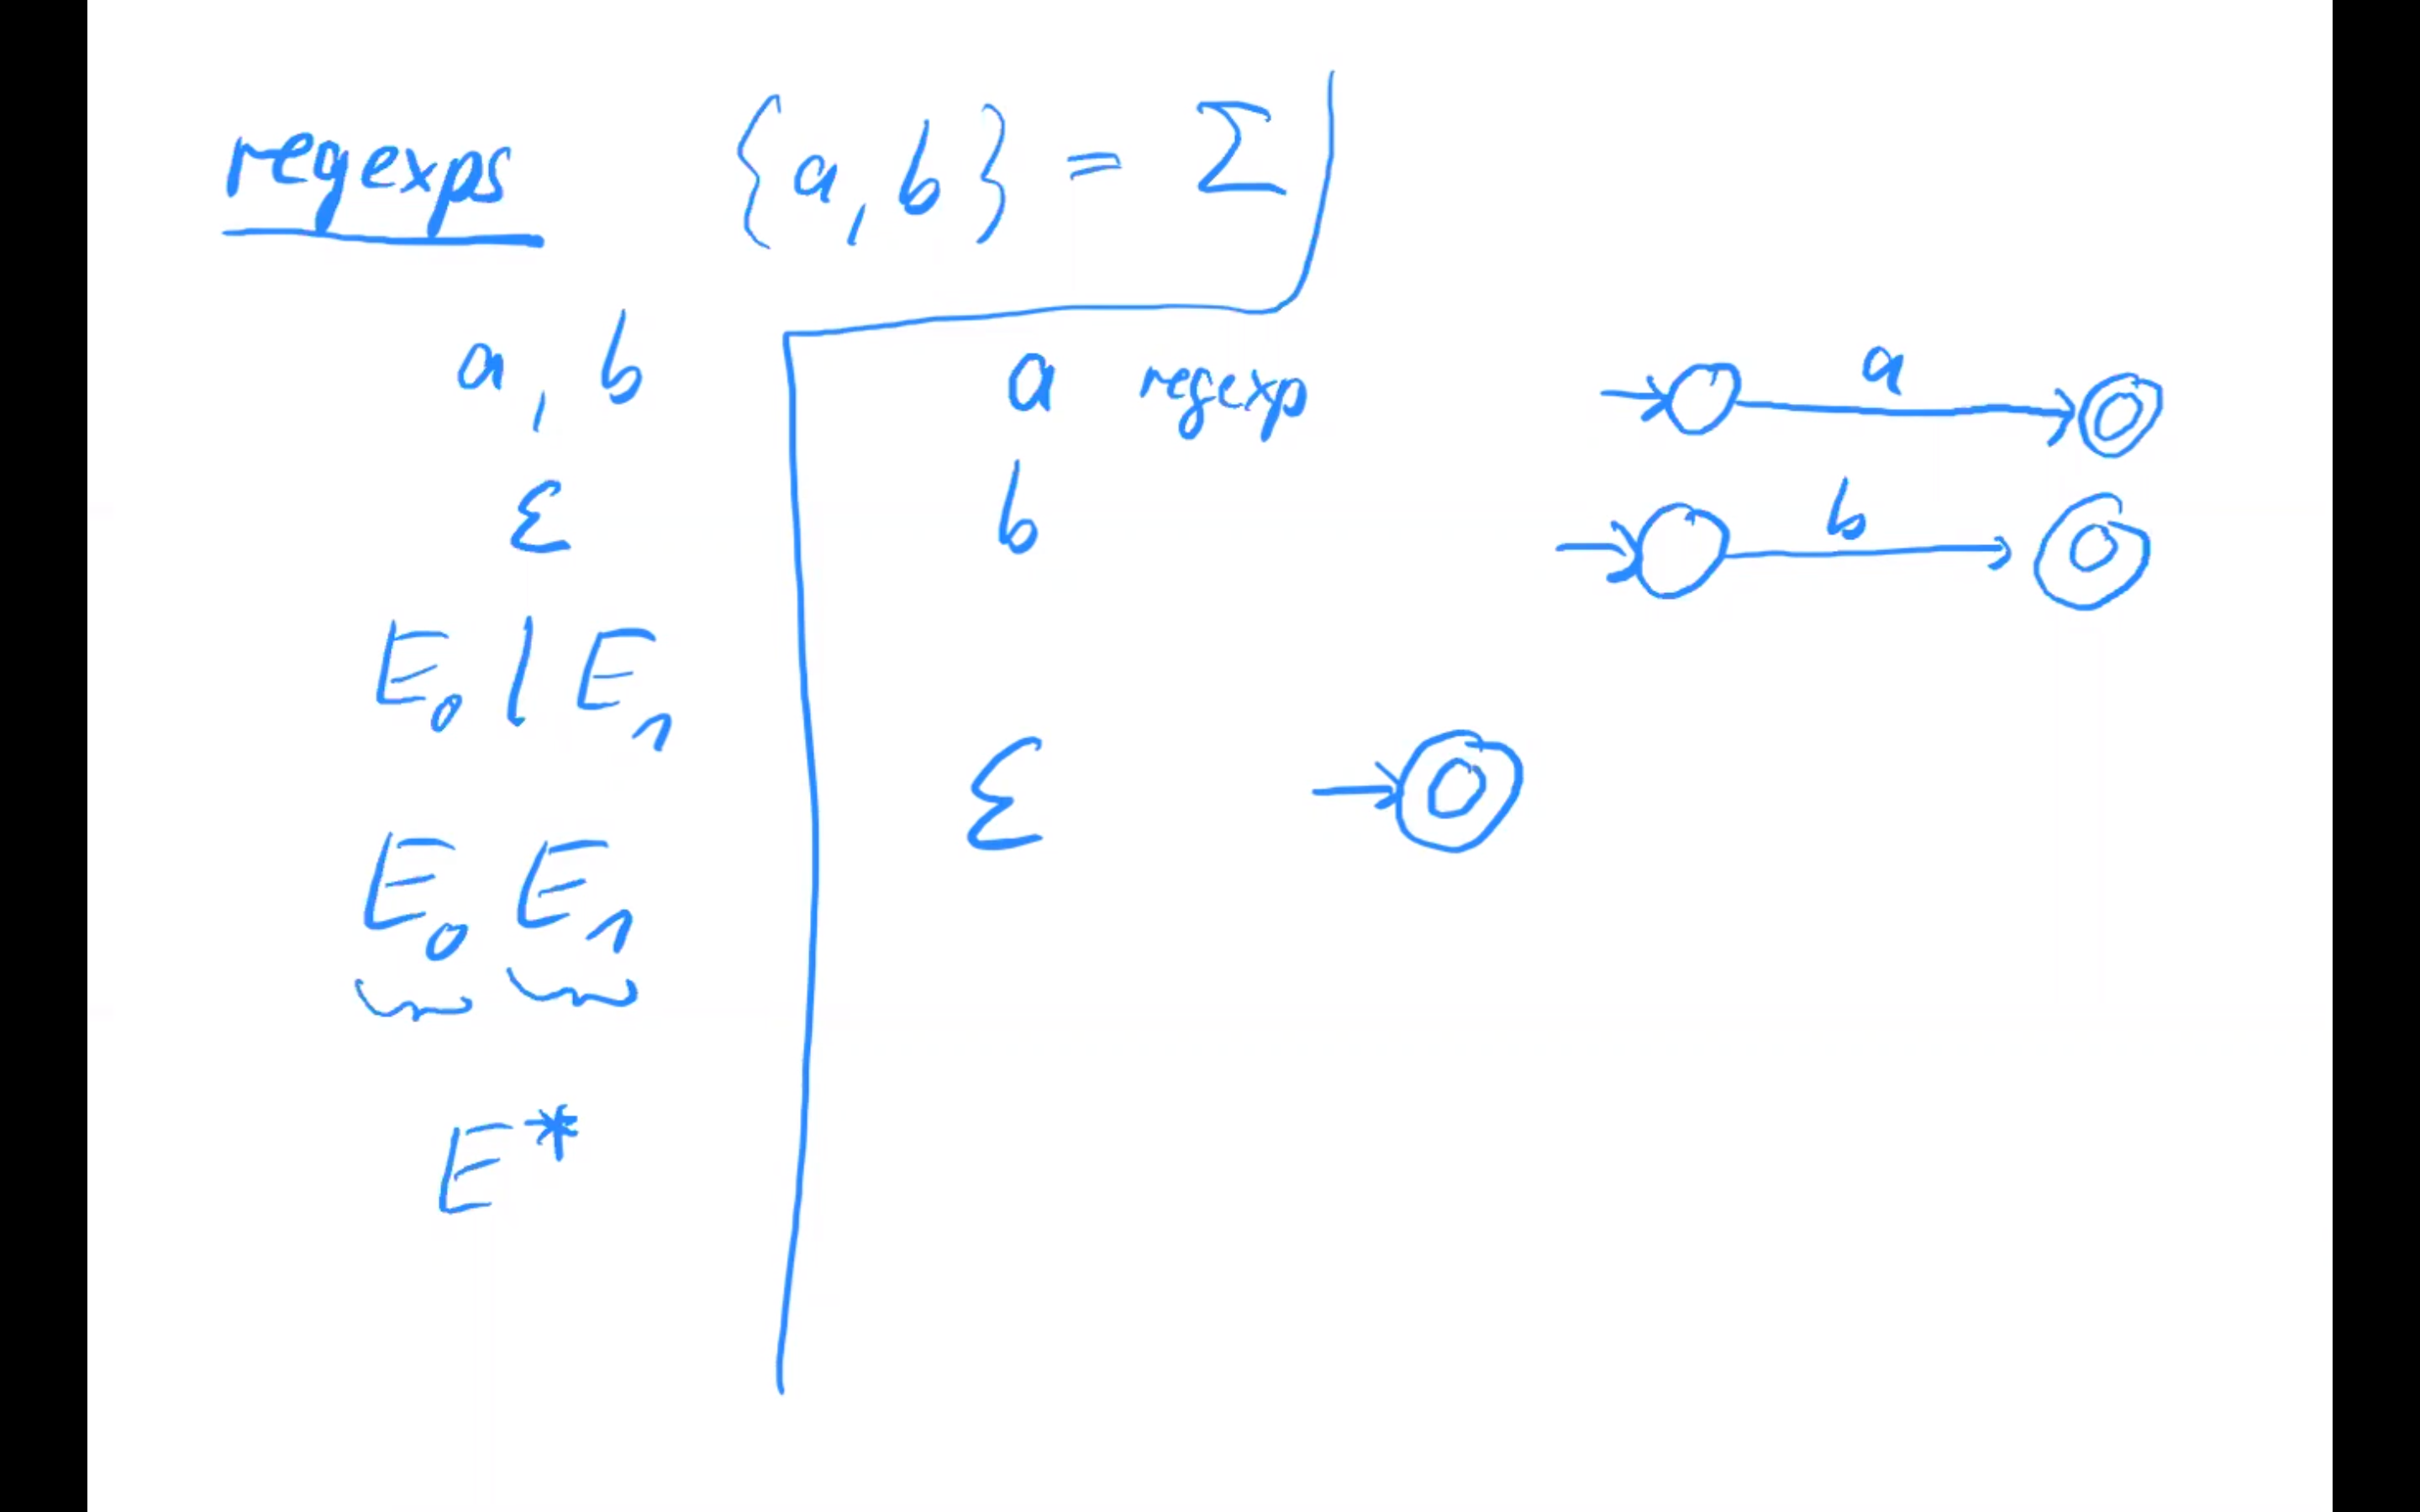 regexps {a, b} = Σ
a, b
ε
E₀ | E₁
E₀ E₁
E*
a regexp
a
b
b
ε